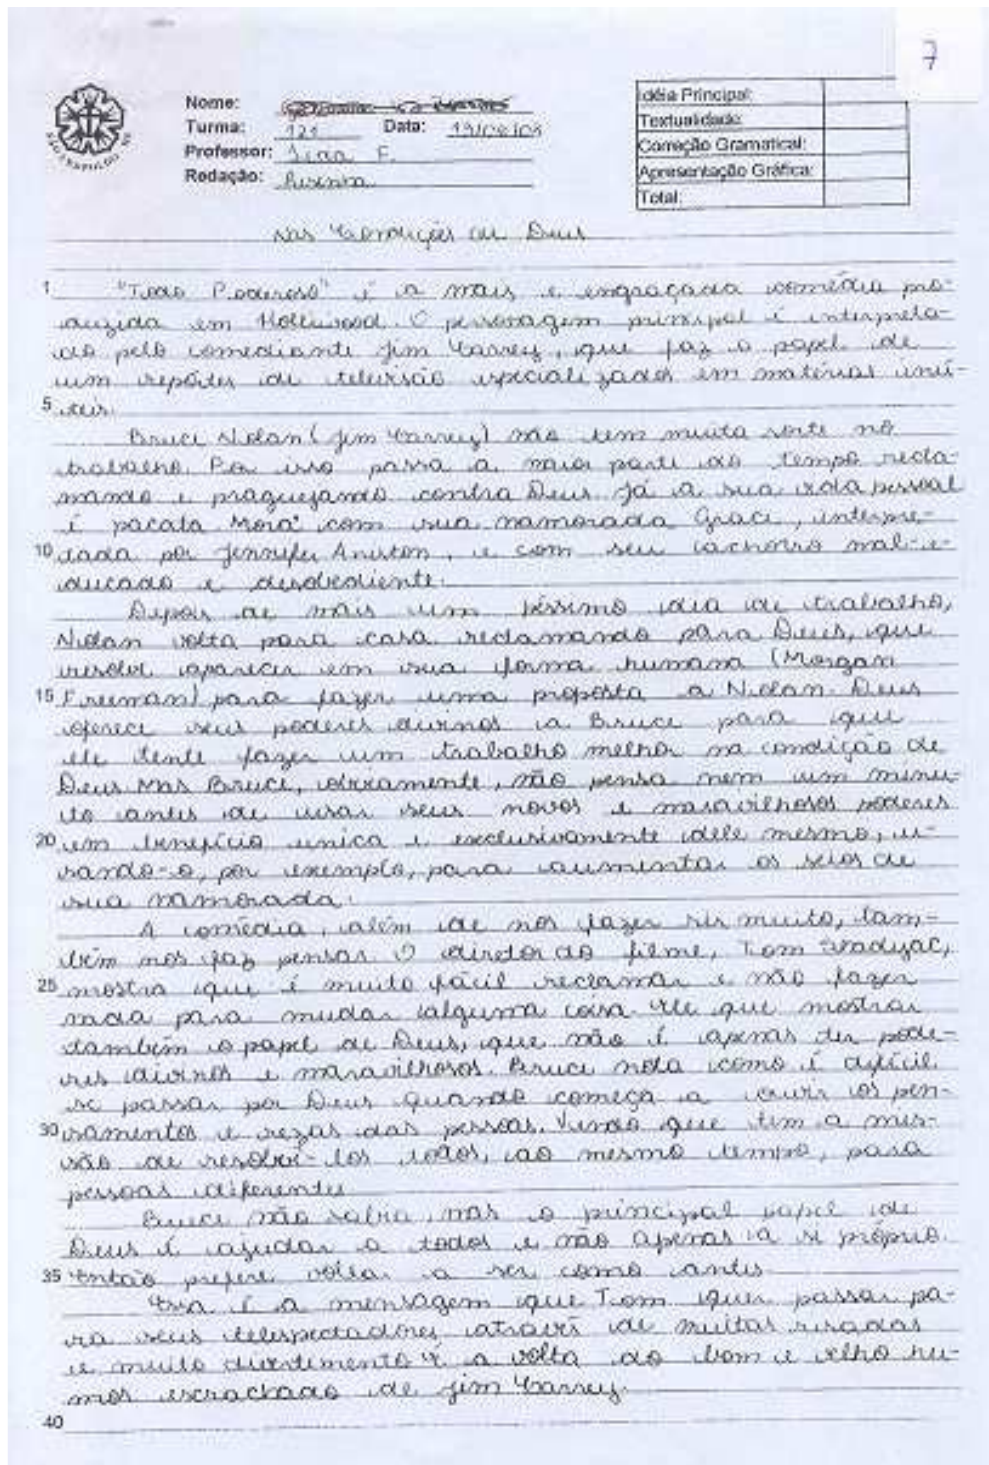 7
Nome:
Turma: 121 Data: 19/08/03
Professor: F.
Redação: Resenha
Idéia Principal:
Textualidade:
Correção Gramatical:
Apresentação Gráfica:
Total:
SÃO LEOPOLDO RS
Nas Condições de Deus
1 "Todo Poderoso" é a mais e engraçada comédia pro-
duzida em Holliwood. O personagem principal é interpreta-
do pelo comediante Jim Carrey, que faz o papel de
um repórter de televisão especializados em matérias inú-
5 teis.
Bruce Nolan (Jim Carrey) não tem muita sorte no
trabalho. Por isso passa a maior parte do tempo recla-
mando e praguejando contra Deus. Já a sua vida pessoal
é pacata. Mora com sua namorada Grace, interpre-
10 tada por Jennifer Aniston, e com seu cachorro mal-e-
ducado e desobediente.
Depois de mais um péssimo dia de trabalho,
Nolan volta para casa reclamando para Deus, que
resolve aparecer em sua forma humana (Morgan
15 Freeman) para fazer uma proposta a Nolan. Deus
oferece seus poderes divinos a Bruce para que
ele tente fazer um trabalho melhor na condição de
Deus. Mas Bruce, obviamente, não pensa nem um minu-
to antes de usar seus novos e maravilhosos poderes
20 em benefício unica e exclusivamente dele mesmo, u-
sando-o, por exemplo, para aumentar os seios de
sua namorada.
A comédia, além de nos fazer rir muito, tam-
bém nos faz pensar. O diretor do filme, Tom Shadyac,
25 mostra que é muito fácil reclamar e não fazer
nada para mudar alguma coisa. Ele quer mostrar
também o papel de Deus, que não é apenas ter pode-
res divinos e maravilhosos. Bruce nota como é difícil
se passar por Deus quando começa a ouvir os pen-
30 samentos e rezas das pessoas. Vendo que tem a mis-
são de resolvê-los todos, ao mesmo tempo, para
pessoas diferentes.
Bruce não sabia, mas o principal papel de
Deus é ajudar a todos e não apenas a si próprio.
35 Então prefere voltar a ser como antes.
Essa é a mensagem que Tom quer passar pa-
ra seus telespectadores através de muitas risadas
e muito divertimento é a volta do bom e velho hu-
mor escrachado de Jim Carrey.
40